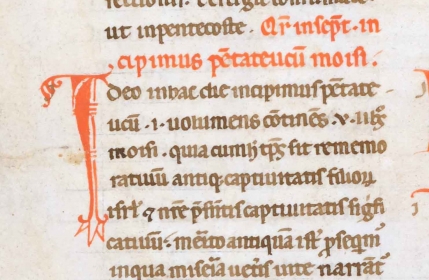 ut in pentecoste. Qr in sept. in
cipimus pẽtateucũ moisi.
Ideo in hac die incipimus pẽtate
ucũ .i. volumens cõtinẽs .v. lib
moisi. quia cum tps sit rememo
ratiuũ antiq captiuitatis filioꝝ
isrl ⁊ nre psentis captiuitatis figñ
catiuũ. merito antiquã
in qua miseria ueteris uite narrãt